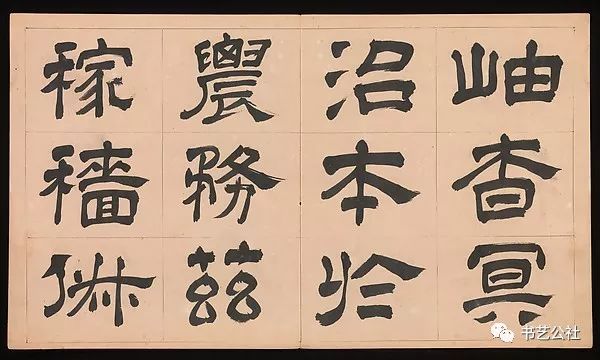 岫杳冥
治本於
農務茲
稼穡俶
书艺公社